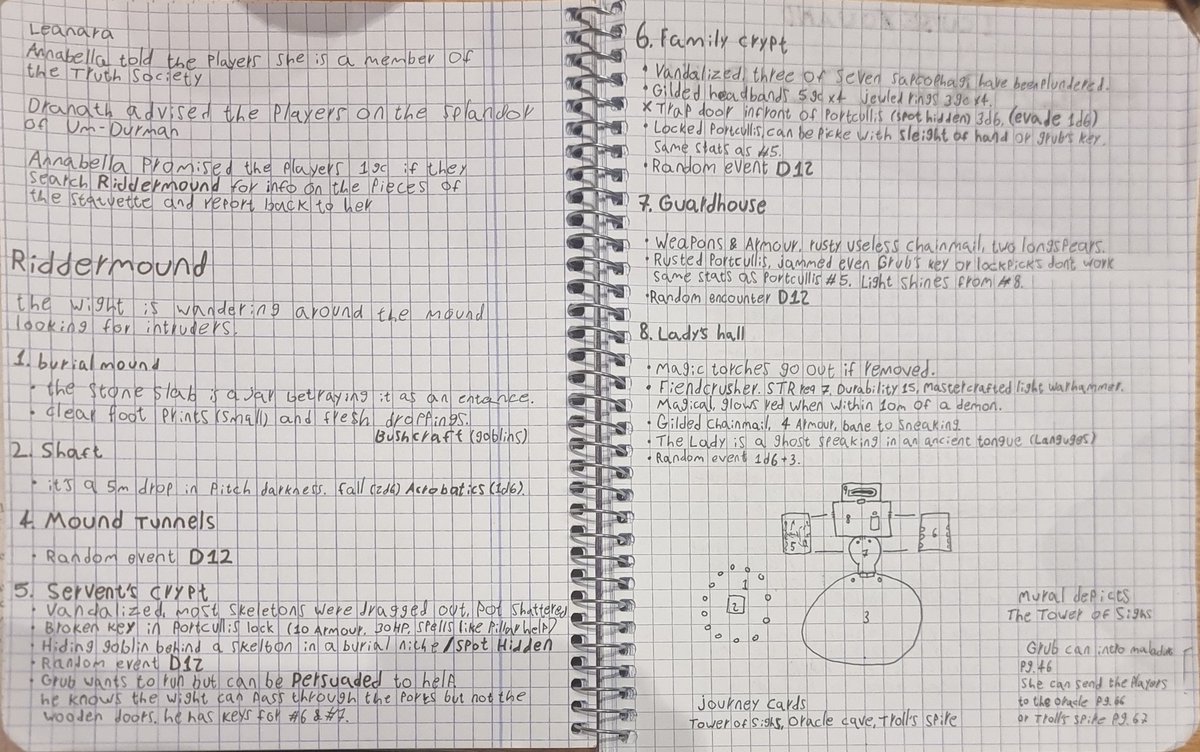 Leanara
Annabella told the players she is a member of
the Truth Society
Dranath advised the players on the splandor
of Um-Durman
Annabella promised the players 1gc if they
search Riddermound for info on the pieces of
the statvette and report back to her
Riddermound
the wight is wandering around the mound
looking for intruders.
1. burial mound
• the stone slab is ajar betraying it as an entance.
• clear foot prints (small) and fresh droppings.
Bushcraft (goblins)
2. Shaft
• it's a 5m drop in pitch darkness. fall (2d6) Acrobatics (1d6).
4. Mound Tunnels
• Random event D12
5. Servent's crypt
• Vandalized, most skeletons were dragged out, pot shattered
• Broken key in portcullis lock (10 Armour, 30HP, spells like pillar help)
• Hiding goblin behind a skelton in a burial niche/spot Hidden
• Random event D12
• Grub wants to run but can be persuaded to help
he knows the wight can pass through the ports but not the
wooden doors. he has keys for #6 & #7.
6. Family crypt
• Vandalized, three of seven sarcophagi have been plundered.
• Gilded headbands 5gc x4 jewled rings 3gc x4.
x Trap door infront of portcullis (spot hidden) 3d6, (evade 1d6)
• Locked portcullis, can be picke with sleight of hand or grub's key.
same stats as #5.
• Random event D12
7. Guardhouse
• Weapons & Armour. rusty useless chainmail, two longspears.
• Rusted portcullis, jammed even Grub's key or lockpicks dont work
same stats as portcullis #5. Light shines from #8.
• Random encounter D12
8. Lady's hall
• Magic torches go out if removed.
• Fiendcrusher. STR req 7, Durability 15, mastercrafted light warhammer.
Magical, glows red when within 10m of a demon.
• Gilded chainmail, 4 Armour, bane to sneaking
• The Lady is a ghost speaking in an ancient tongue (Languges)
• Random event 1d6+3.
9
8
5
6
7
1
2
3
Mural depicts
The Tower of Sighs
Grub can intro
pg.46
She can send the players
to the oracle pg.66
or Troll's spire pg.62
Journey cards
Tower of sighs, Oracle cave, Troll's spire